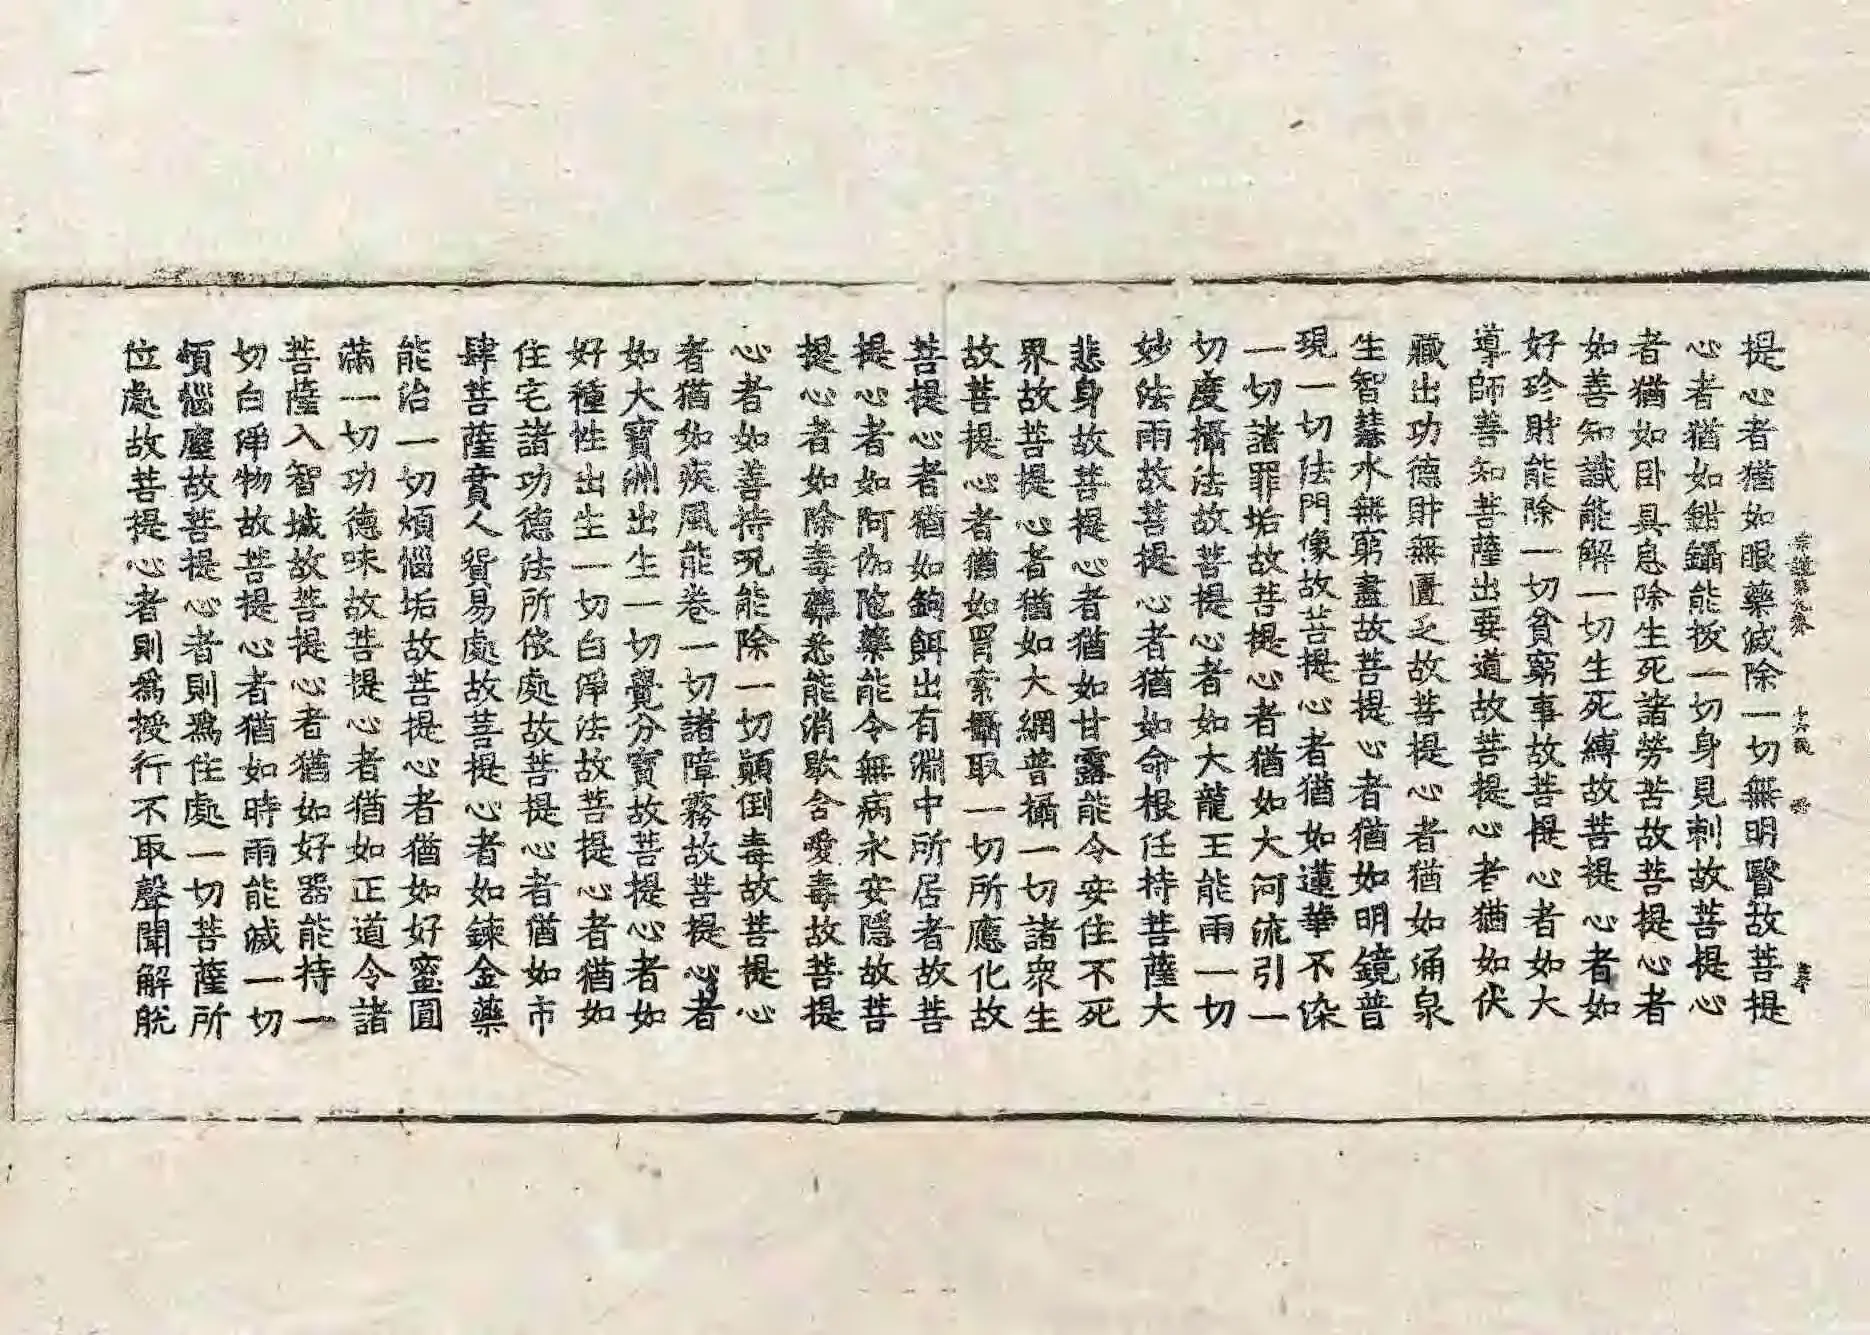 提心者猶如眼藥滅除一切無明瞖故菩提
心者猶如鉆鑷能拔一切身見刺故菩提心
者猶如卧具息除生死諸勞苦故菩提心者
如善知識能解一切生死縛故菩提心者如
好珍財能除一切貧窮事故菩提心者如大
導師善知菩薩出要道故菩提心者猶如伏
藏出功德財無匱乏故菩提心者猶如涌泉
生智慧水無窮盡故菩提心者猶如明鏡普
現一切法門像故菩提心者猶如蓮華不染
一切諸罪垢故菩提心者猶如大河流引一
切度攝法故菩提心者如大龍王能雨一切
妙法雨故菩提心者猶如命根任持菩薩大
悲身故菩提心者猶如甘露能令安住不死
界故菩提心者猶如大網普攝一切諸衆生
故菩提心者猶如罥索攝取一切所應化故
菩提心者猶如鉤餌出有淵中所居者故菩
提心者如阿伽陁藥能令無病永安隱故菩
提心者如除毒藥悉能消歇含愛毒故菩提
心者如善持呪能除一切顛倒毒故菩提心
者猶如疾風能卷一切諸障霧故菩提心者
如大寶洲出生一切覺分寶故菩提心者如
好種性出生一切白淨法故菩提心者猶如
住宅諸功德法所依處故菩提心者猶如市
肆菩薩賣人貿易處故菩提心者如鍊金藥
能治一切煩惱垢故菩提心者猶如好蜜圓
滿一切功德味故菩提心者猶如正道令諸
菩薩入智城故菩提心者猶如好器能持一
切白淨物故菩提心者猶如時雨能滅一切
煩惱塵故菩提心者則爲住處一切菩薩所
位處故菩提心者則爲授行不取聲聞解脫